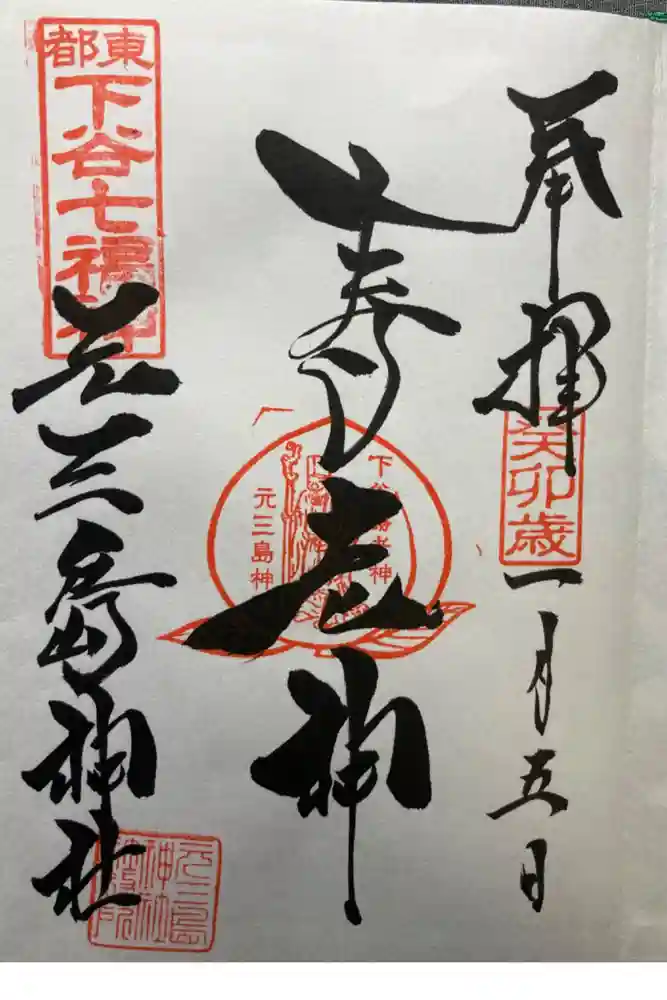 奉拝
癸卯歳
一月五日
寿老神
下谷寿老神
元三島神
東都
下谷七福神
元三島神社
元三島
神社